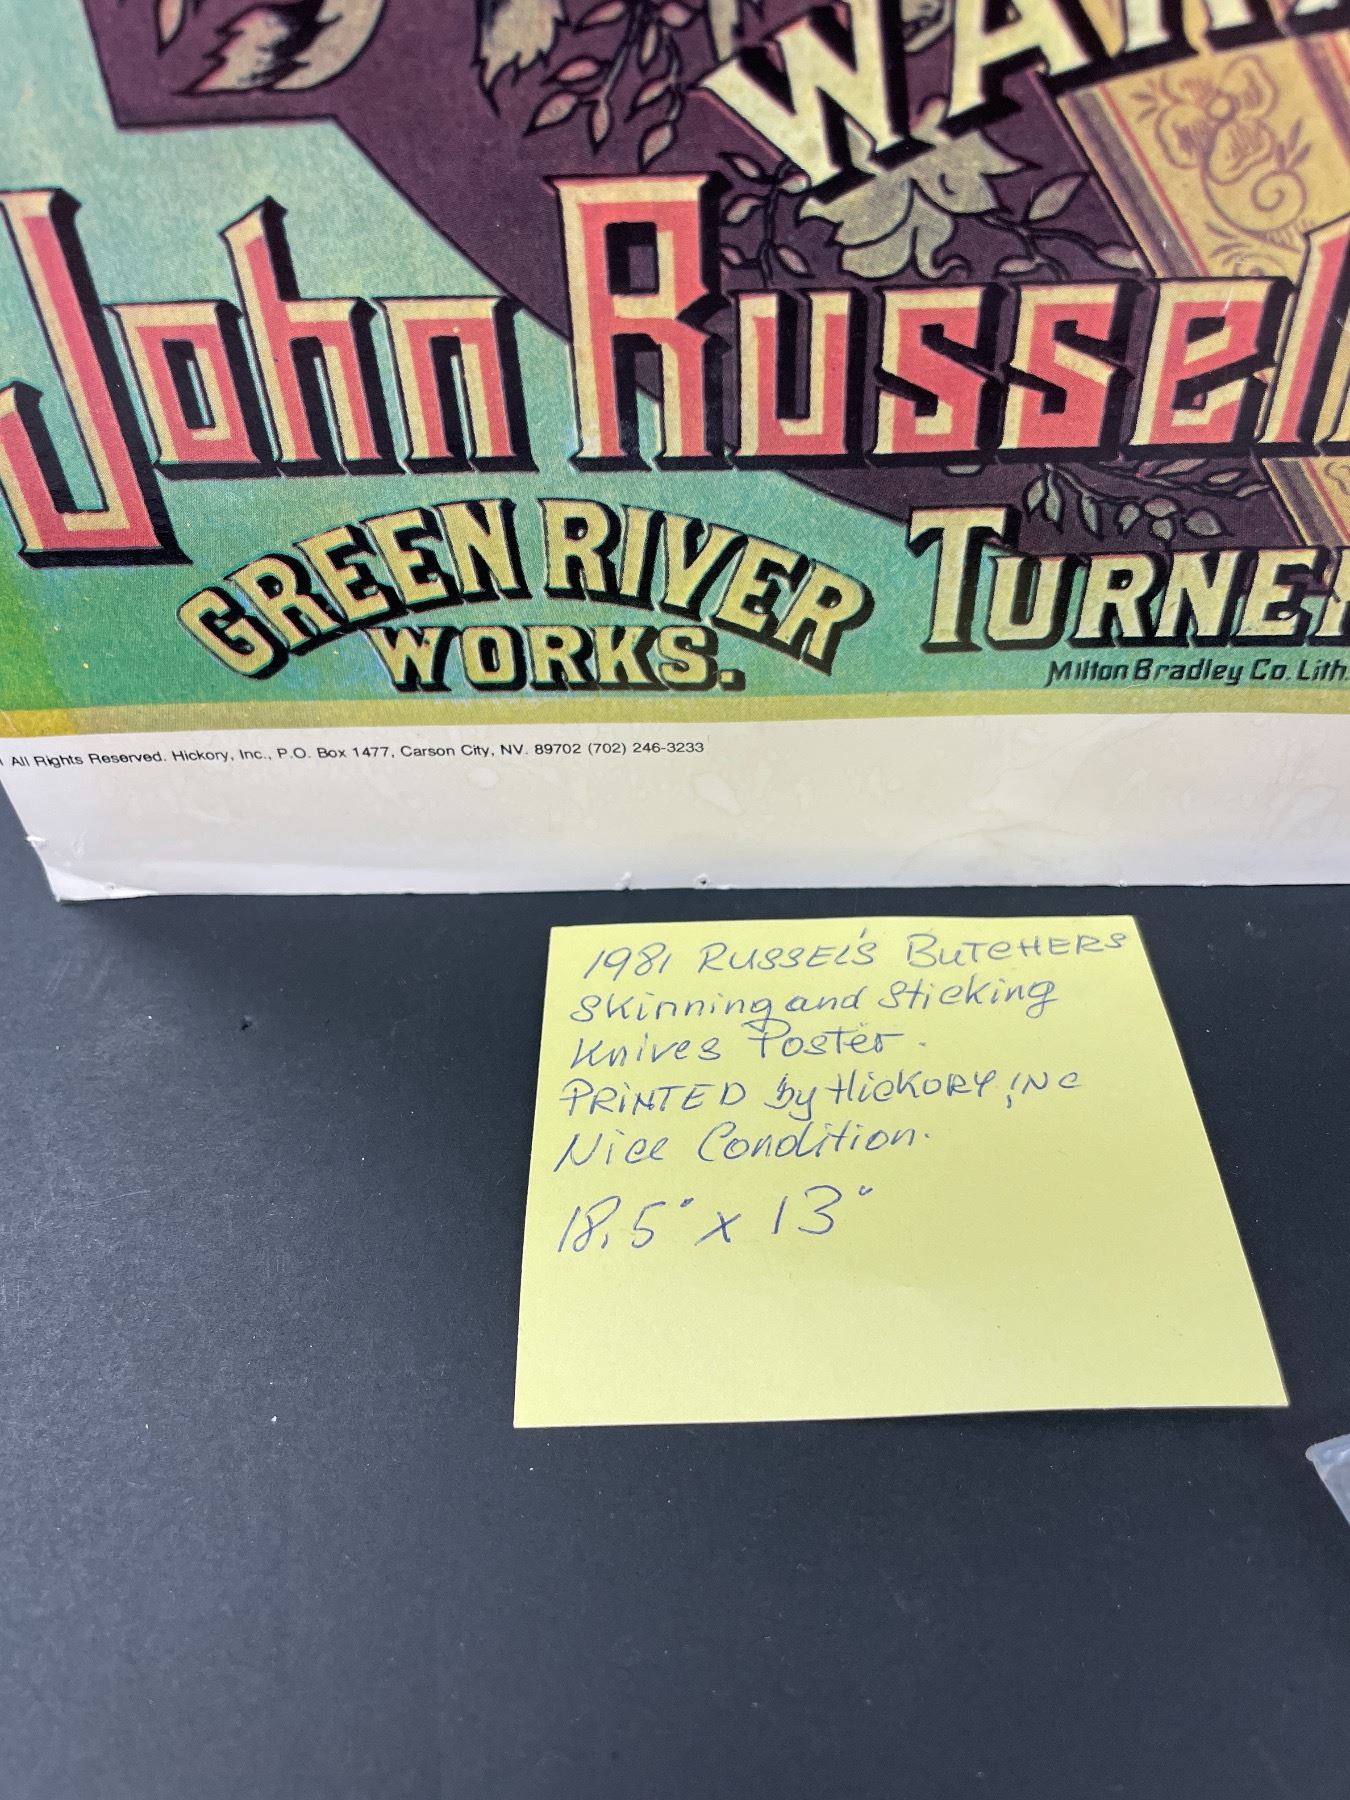 John Russell
GREEN RIVER
WORKS.
TURNE
Milton Bradley Co. Lith.
All Rights Reserved. Hickory, Inc., P.O. Box 1477, Carson City, NV. 89702 (702) 246-3233
1981 RUSSEL'S BUTCHERS
Skinning and Sticking
Knives Poster.
PRINTED by HICKORY, INC
Nice Condition.
18.5" x 13"